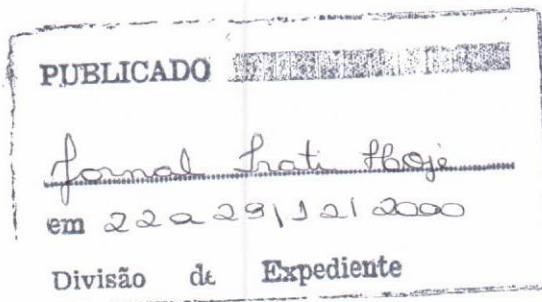 PUBLICADO
Jornal Irati Hoje
em 22 a 29/12/2000
Divisão de Expediente